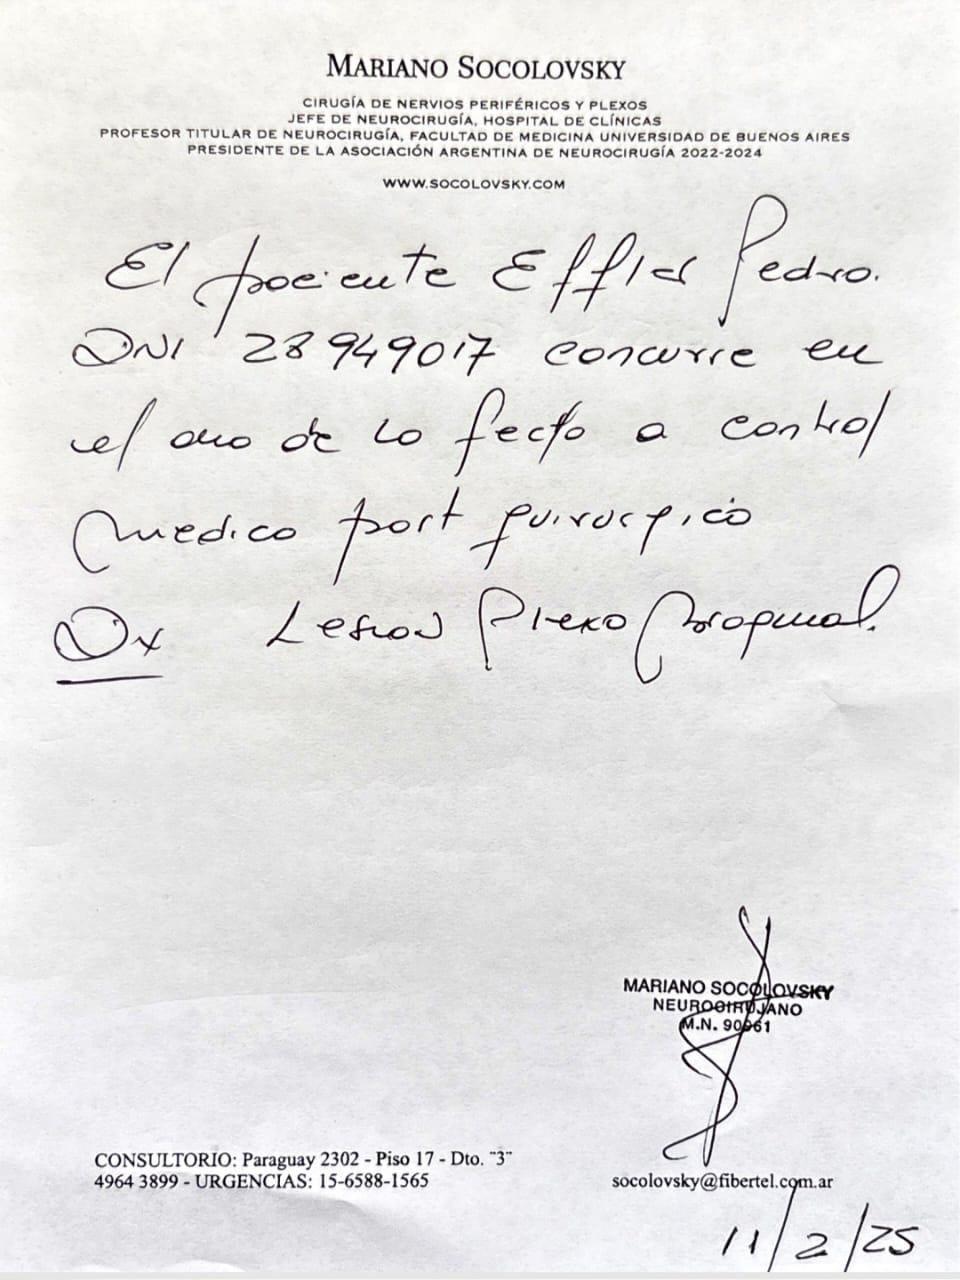 MARIANO SOCOLOVSKY
CIRUGÍA DE NERVIOS PERIFÉRICOS Y PLEXOS
JEFE DE NEUROCIRUGÍA, HOSPITAL DE CLÍNICAS
PROFESOR TITULAR DE NEUROCIRUGÍA, FACULTAD DE MEDICINA UNIVERSIDAD DE BUENOS AIRES
PRESIDENTE DE LA ASOCIACIÓN ARGENTINA DE NEUROCIRUGÍA 2022-2024
WWW.SOCOLOVSKY.COM
El paciente Pedro.
DNI 28949017 concurre en
el de la a control
medico post quirurgico
Dx Lesion Plexo Braquial.
MARIANO SOCOLOVSKY
NEUROCIRUJANO
M.N.
CONSULTORIO: Paraguay 2302 - Piso 17 - Dto. "3"
4964 3899 - URGENCIAS: 15-6588-1565
socolovsky@fibertel.com.ar
11/2/25